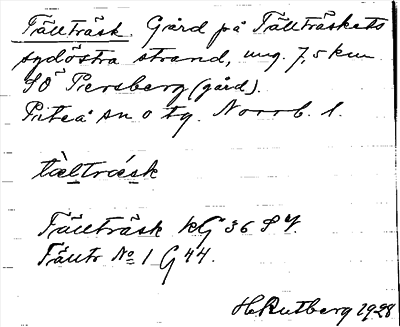 Tällträsk. Gård på Tällträskets
sydöstra strand, ung. 7,5 km.
SÖ Persberg (gård).
Piteå sn o tg. Norrb. l.
tæ̀ltræsk
Tällträsk KG 36 S
Fäutr No 1 G 44.
H. Rutberg 1928